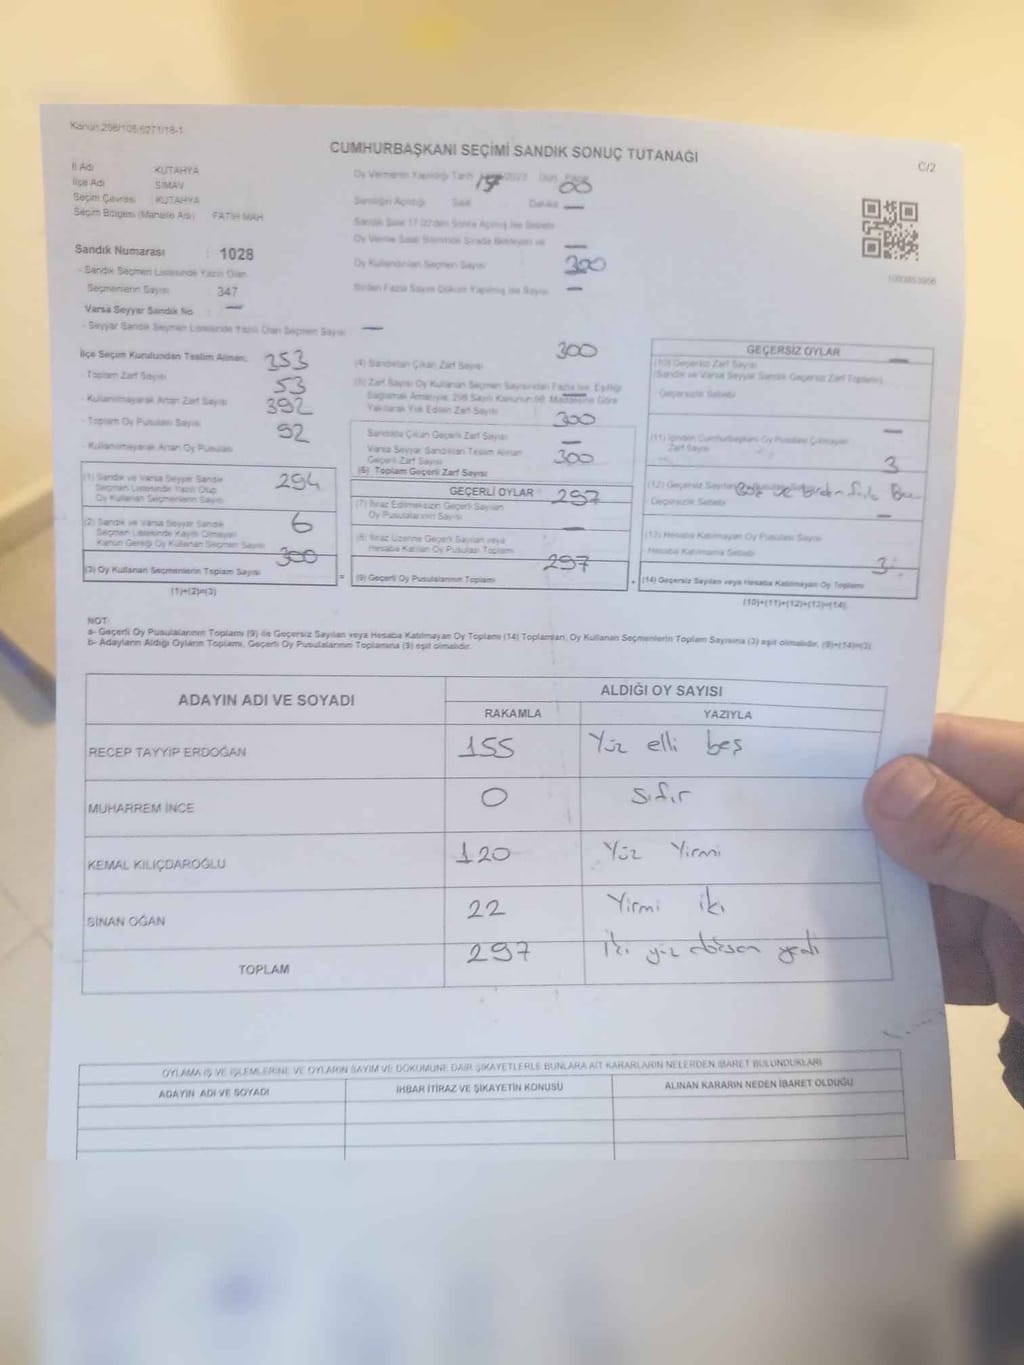 Kanun:298/105,6271/18-1
CUMHURBAŞKANI SEÇİMİ SANDIK SONUÇ TUTANAĞI
C/2
İl Adı KÜTAHYA
İlçe Adı SİMAV
Seçim Çevresi : KÜTAHYA
Seçim Bölgesi (Mahalle Adı) FATİH MAH
Oy Vermenin Yapıldığı Tarih 2023 Gün Pazar
Sandığın Açıldığı Saat Dakika —
Sandık Saat 17.00'den Sonra Açılmış İse Sebebi
Oy Verme Saati Bitiminde Sırada Bekleyen —
Sandık Numarası : 1028
- Sandık Seçmen Listesinde Yazılı Olan
Seçmenlerin Sayısı 347
Oy Kullandırılan Seçmen Sayısı 300
Birden Fazla Sayım Döküm Yapılmış İse Sayısı —
Varsa Seyyar Sandık No —
- Seyyar Sandık Seçmen Listesinde Yazılı Olan Seçmen Sayısı —
İlçe Seçim Kurulundan Teslim Alınan;
- Toplam Zarf Sayısı 353
- Kullanılmayarak Artan Zarf Sayısı 53
- Toplam Oy Pusulası Sayısı 392
- Kullanılmayarak Artan Oy Pusulası 92
(1) Sandık ve Varsa Seyyar Sandık
Seçmen Listesinde Yazılı Olup
Oy Kullanan Seçmenlerin Sayısı 294
(2) Sandık ve Varsa Seyyar Sandık
Seçmen Listesinde Kayıtlı Olmayan
Kanun Gereği Oy Kullanan Seçmen Sayısı 6
(3) Oy Kullanan Seçmenlerin Toplam Sayısı 300
(1)+(2)=(3)
(4) Sandıktan Çıkan Zarf Sayısı 300
(5) Zarf Sayısı Oy Kullanan Seçmen Sayısından Fazla İse, Eşitliği
Sağlamak Amacıyla, 298 Sayılı Kanunun 98. Maddesine Göre
Yakılarak Yok Edilen Zarf Sayısı —
Sandıkta Çıkan Geçerli Zarf Sayısı 300
Varsa Seyyar Sandıktan Teslim Alınan
Geçerli Zarf Sayısı —
(6) Toplam Geçerli Zarf Sayısı 300
GEÇERLİ OYLAR
(7) İtiraz Edilmeksizin Geçerli Sayılan
Oy Pusulalarının Sayısı 297
(8) İtiraz Üzerine Geçerli Sayılan veya
Hesaba Katılan Oy Pusulası Toplamı —
= (9) Geçerli Oy Pusulalarının Toplamı 297
GEÇERSİZ OYLAR
(10) Geçersiz Zarf Sayısı —
(Sandık ve Varsa Seyyar Sandık Geçersiz Zarf Toplamı)
- Geçersizlik Sebebi
(11) İçinden Cumhurbaşkanı Oy Pusulası Çıkmayan
Zarf Sayısı —
(12) Geçersiz 3
Geçersizlik Sebebi
(13) Hesaba Katılmayan Oy Pusulası Sayısı —
Hesaba Katılmama Sebebi
+ (14) Geçersiz Sayılan veya Hesaba Katılmayan Oy Toplamı 3
(10)+(11)+(12)+(13)=(14)
NOT:
a- Geçerli Oy Pusulalarının Toplamı (9) ile Geçersiz Sayılan veya Hesaba Katılmayan Oy Toplamı (14) Toplamları, Oy Kullanan Seçmenlerin Toplam Sayısına (3) eşit olmalıdır. (9)+(14)=(3)
b- Adayların Aldığı Oyların Toplamı, Geçerli Oy Pusulalarının Toplamına (9) eşit olmalıdır.
ADAYIN ADI VE SOYADI
ALDIĞI OY SAYISI
RAKAMLA YAZIYLA
RECEP TAYYİP ERDOĞAN 155 Yüz elli beş
MUHARREM İNCE 0 Sıfır
KEMAL KILIÇDAROĞLU 120 Yüz Yirmi
SİNAN OĞAN 22 Yirmi iki
TOPLAM 297 iki yüz doksan yedi
OYLAMA İŞ VE İŞLEMLERİNE VE OYLARIN SAYIM VE DÖKÜMÜNE DAİR ŞİKAYETLERLE BUNLARA AİT KARARLARIN NELERDEN İBARET BULUNDUKLARI
ADAYIN ADI VE SOYADI İHBAR İTİRAZ VE ŞİKAYETİN KONUSU ALINAN KARARIN NEDEN İBARET OLDUĞU